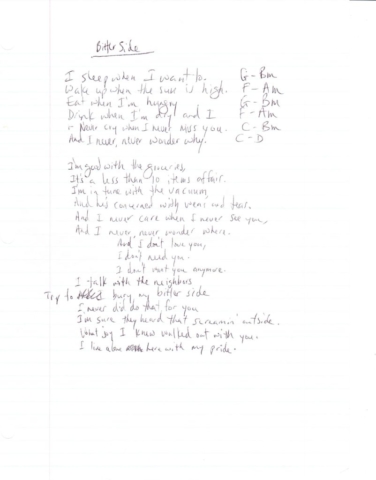 Bitter Side
I sleep when I want to. G - Bm
Wake up when the sun is high. F - Am
Eat when I'm hungry G - Bm
Drink when I'm dry and I F - Am
Never cry when I never miss you. C - Bm
And I never, never wonder why. C - D
I'm good with the groceries
It's a less than 10 items affair.
I'm in tune with the vacuum,
And concerned with wear and tear.
And I never care when I never see you,
And I never, never wonder where.
And I don't love you,
I don't need you.
I don't want you anymore.
I talk with the neighbors
Try to bury my bitter side
I never did do that for you
I'm sure they heard that screamin' outside.
What joy I knew walked out with you.
I live alone here with my pride.